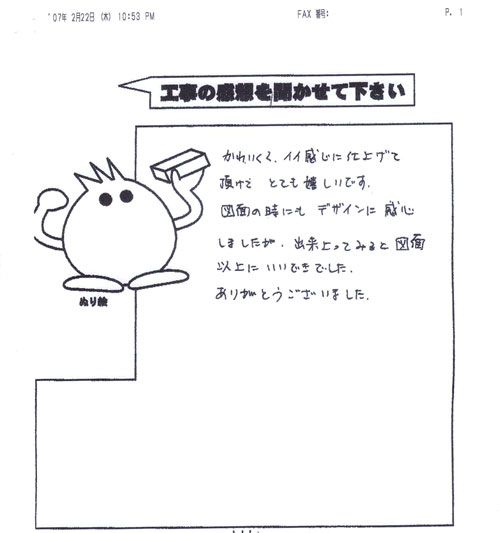 '07年 2月22日 (木) 10:53 PM FAX 番号: P. 1
工事の感想を聞かせて下さい
かわいくて、イイ感じに仕上げて
頂けて とても嬉しいです.
図面の時にも デザインに 感心
しましたが、出来上ってみると 図面
以上に いいできでした.
ありがとうございました.
ぬり絵